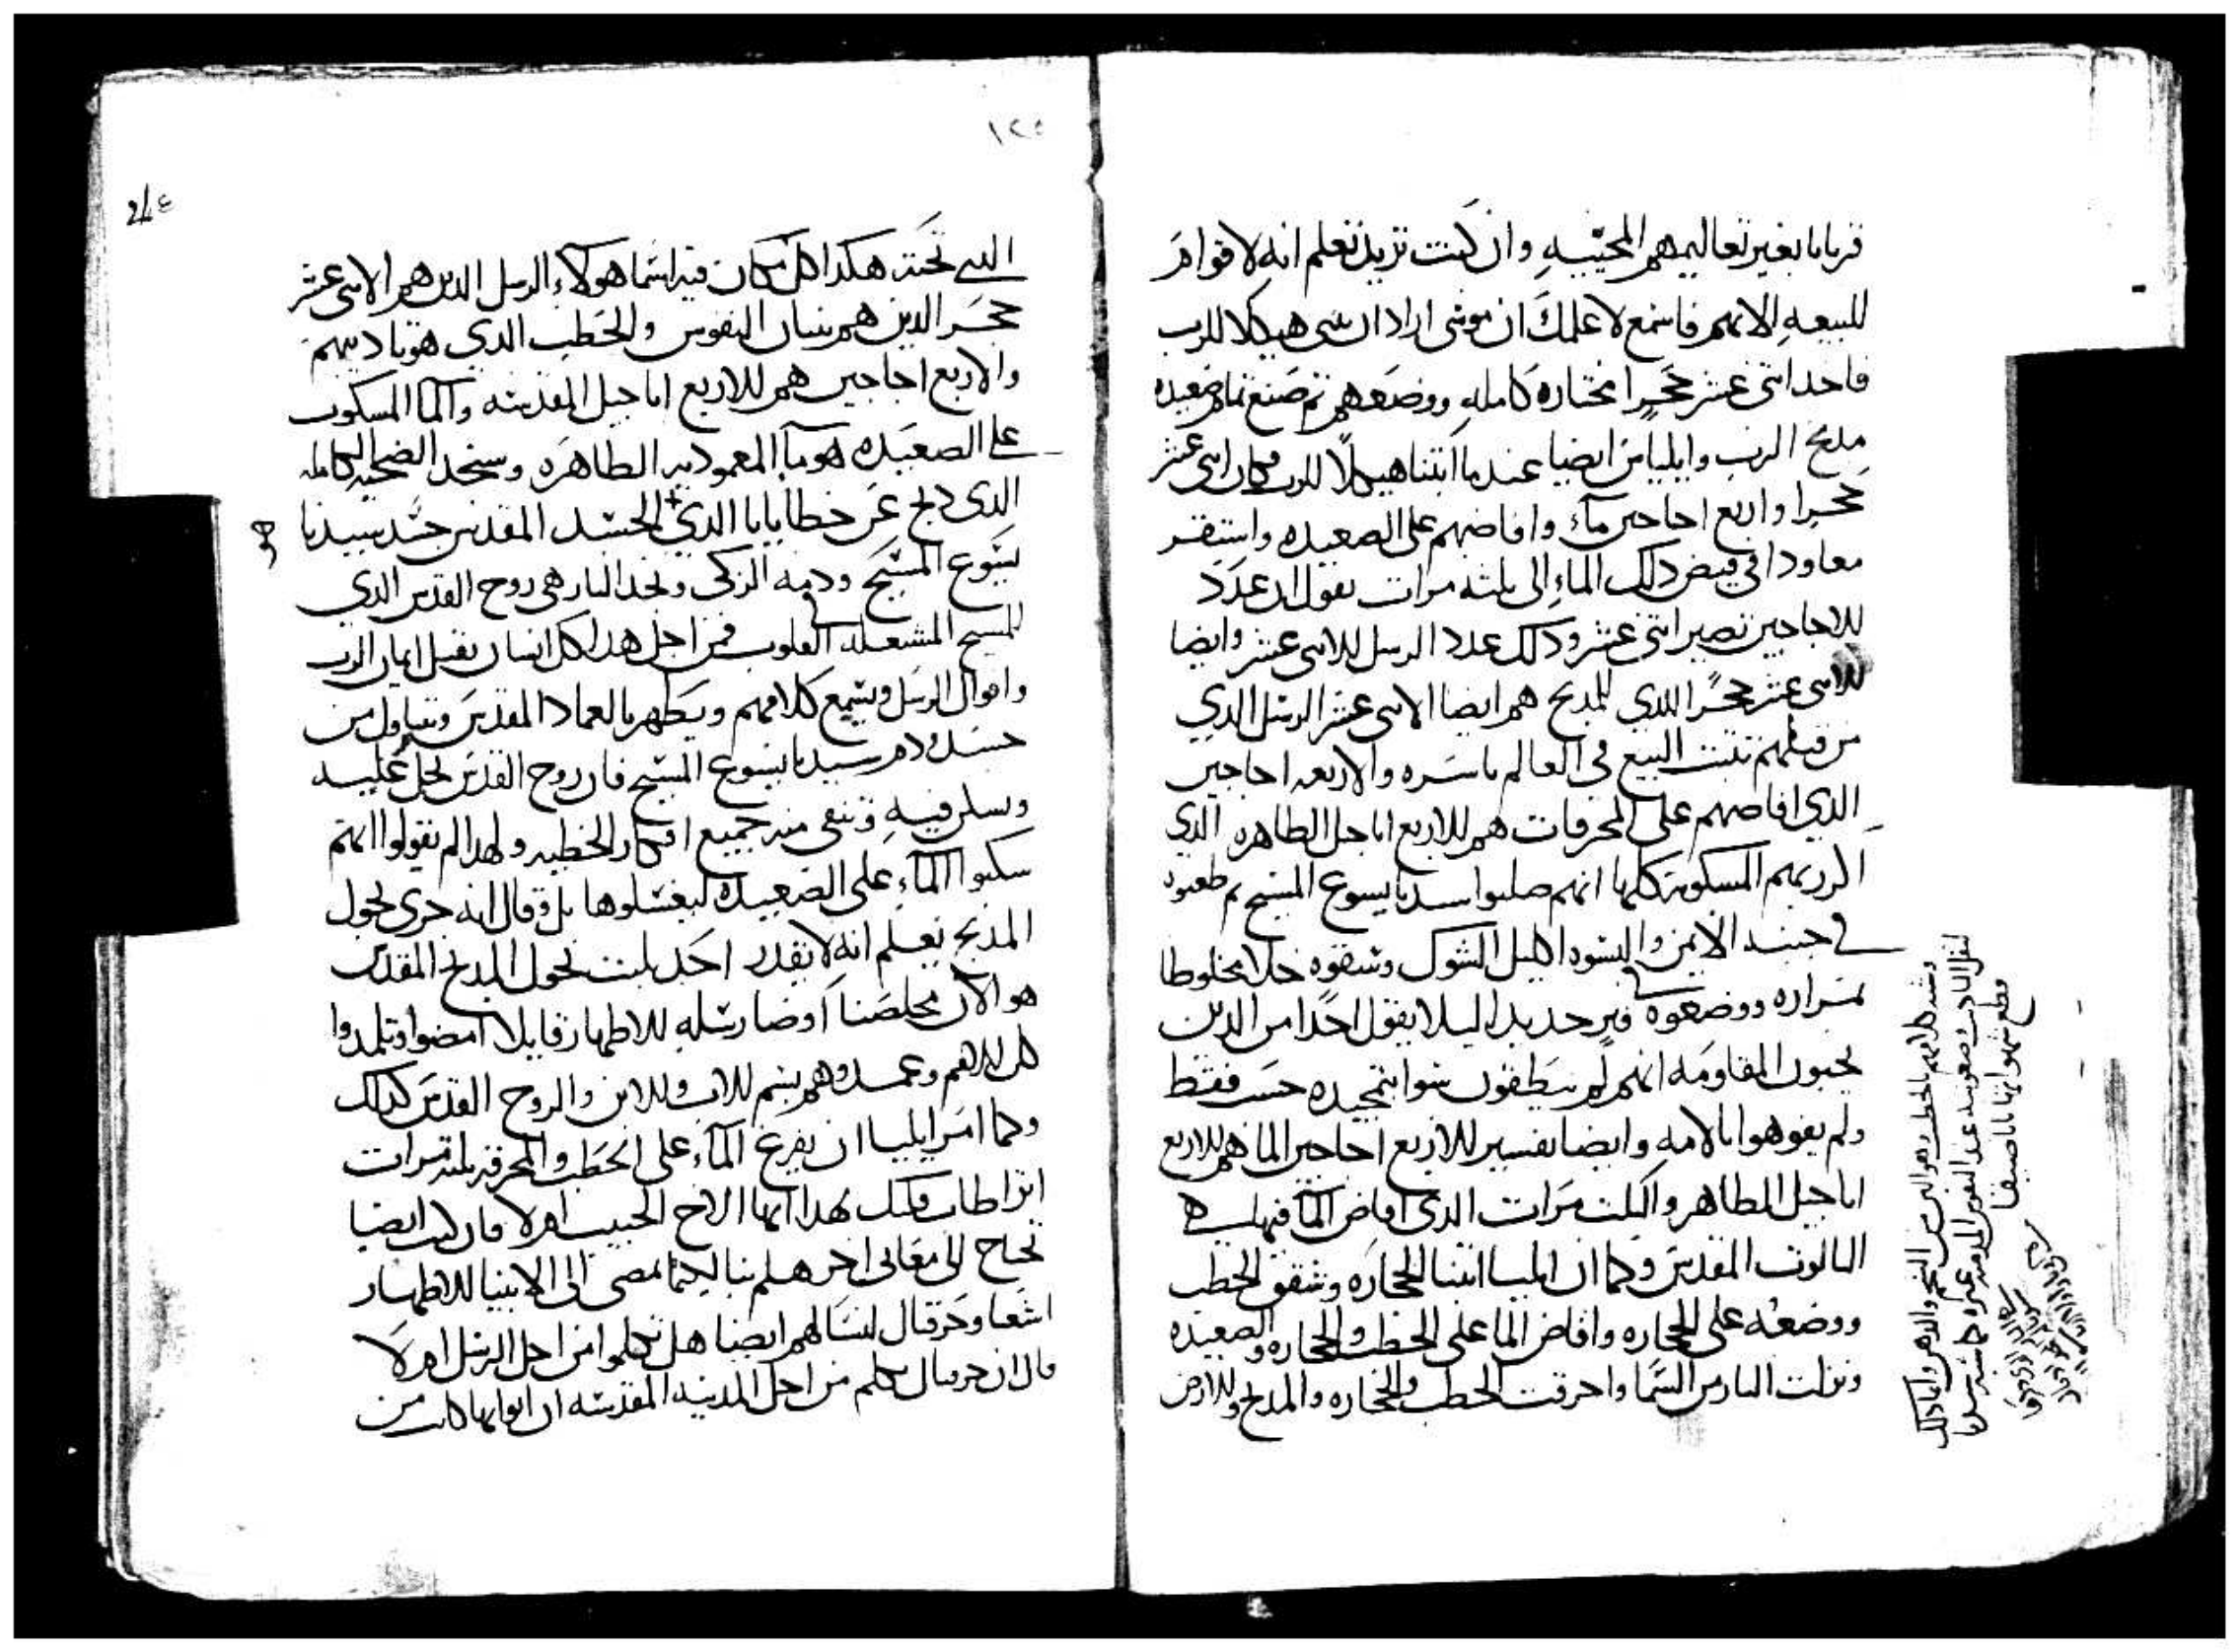 قربانا بغير تعاليمهم المحييه وان كنت تريد تعلم انه لا قوام
للبيعه الا بهم فاسمع لاعلمك ان موسى اراد ان يبنى هيكلا للرب
فاخد اتنى عشر حجرا مختاره كامله ووضعهم ثم صنع تمام صعيده
مدبح الرب وايلياس ايضا عندما ابتنا هيكلا للرب فكان اتنى عشر
حجرا واربع اجاجين مآء وافاضهم على الصعيده واستقر
معاودا فى فيض دلك الماء الى تلته مرات يقول ان عدد
للاجاجين تصير اتنى عشر ودلك عدد الرسل للاتنى عشر وايضا
للاتنى عشر حجرا اللدي للمدبح هم ايضا الاتنى عشر الرسل الدي
من قبلهم تتبت البيع فى العالم باسره والاربعه اجاجين
الدي افاضهم على المحرقات هم للاربع اناجيل الطاهره الدى
اندرتهم المسكونه كلها انهم صلبوا سيدنا يسوع المسيح ثم طعنوه
فى جنبه الايمن والبسوه اكليل الشوك وسقوه خلا مخلوطا
بمراره ووضعوه فى قبر جديد ليلا يقول احدا من الدين
يحبون المقاومه انهم لم ينطقون سوا بتمجيده حسب فقط
ولم يفوهوا بالامه وايضا تفسير للاربع اجاجين الما هم للاربع
اناجيل الطاهر والتلت مرات الدى افاض المآ فيها هى
التالوت المقدس وكما ان ايليا ابتنا الحجاره وشقق الحطب
ووضعه على الحجاره وافاض الما على الحطب والحجاره والصعيده
ونزلت النار من السما واحرقت الحطب والحجاره والمدبح وللارض
وشبه كلامهم بالحطب وهو
١٢٥
التى تحته هكدا كل مكان فيه اسما هولاء الرسل الدين هم الاتنى عشر
حجر الدين هم بنيان النفوس والحطب الدي هو تاديبهم
والاربع اجاجين هم للاربع اناجيل المقدسه والما المسكوب
على الصعيده هو مآ المعموديه الطاهره وسنجد الضحيه الكامله
الدى دبح عن خطايانا الدي الجسد المقدس جسد سيدنا
يسوع المسيح ودمه الزكى ونجد النار هى روح القدس الدي
للمسيح المشتعله فى القلوب فمن اجل هدا كل انسان يقبل ايمان الرب
واقوال الرسل ويسمع كلامهم ويتطهر بالعماد المقدس ويتناول من
جسد ودم سيدنا يسوع المسيح فان روح القدس تحل عليه
وتسكن فيه وتنقى منه جميع افكار الخطيه ولهدا لم يقولوا انهم
سكبوا المآء على الصعيده ليغسلوها بل وقال انه جرى حول
المدبح تعلم انه لا يقدر احد يلبت حول المدبح المقدس
هو الان مخلصنا اوصا رسله للاطهار قايلا امضوا وتلمدوا
كل للامم وعمدوهم بسم للاب وللابن والروح القدس كدلك
وكما امر ايليا ان يفرغ المآء على الحطب والمحرقه تلته مرات
اترا طاب قلبك بهدا ايها الاخ الحبيب ام لا فان كنت ايضا
تحتاج الى معانى اخر هلم بنا لكيما نمضى الى الانبيا للاطهار
اشعيا وحزقيال لنسالهم ايضا هل تكلموا من اجل الرسل ام لا
قال ان حزقيال تكلم من اجل المدينه المقدسه ان ابوابها كانت من